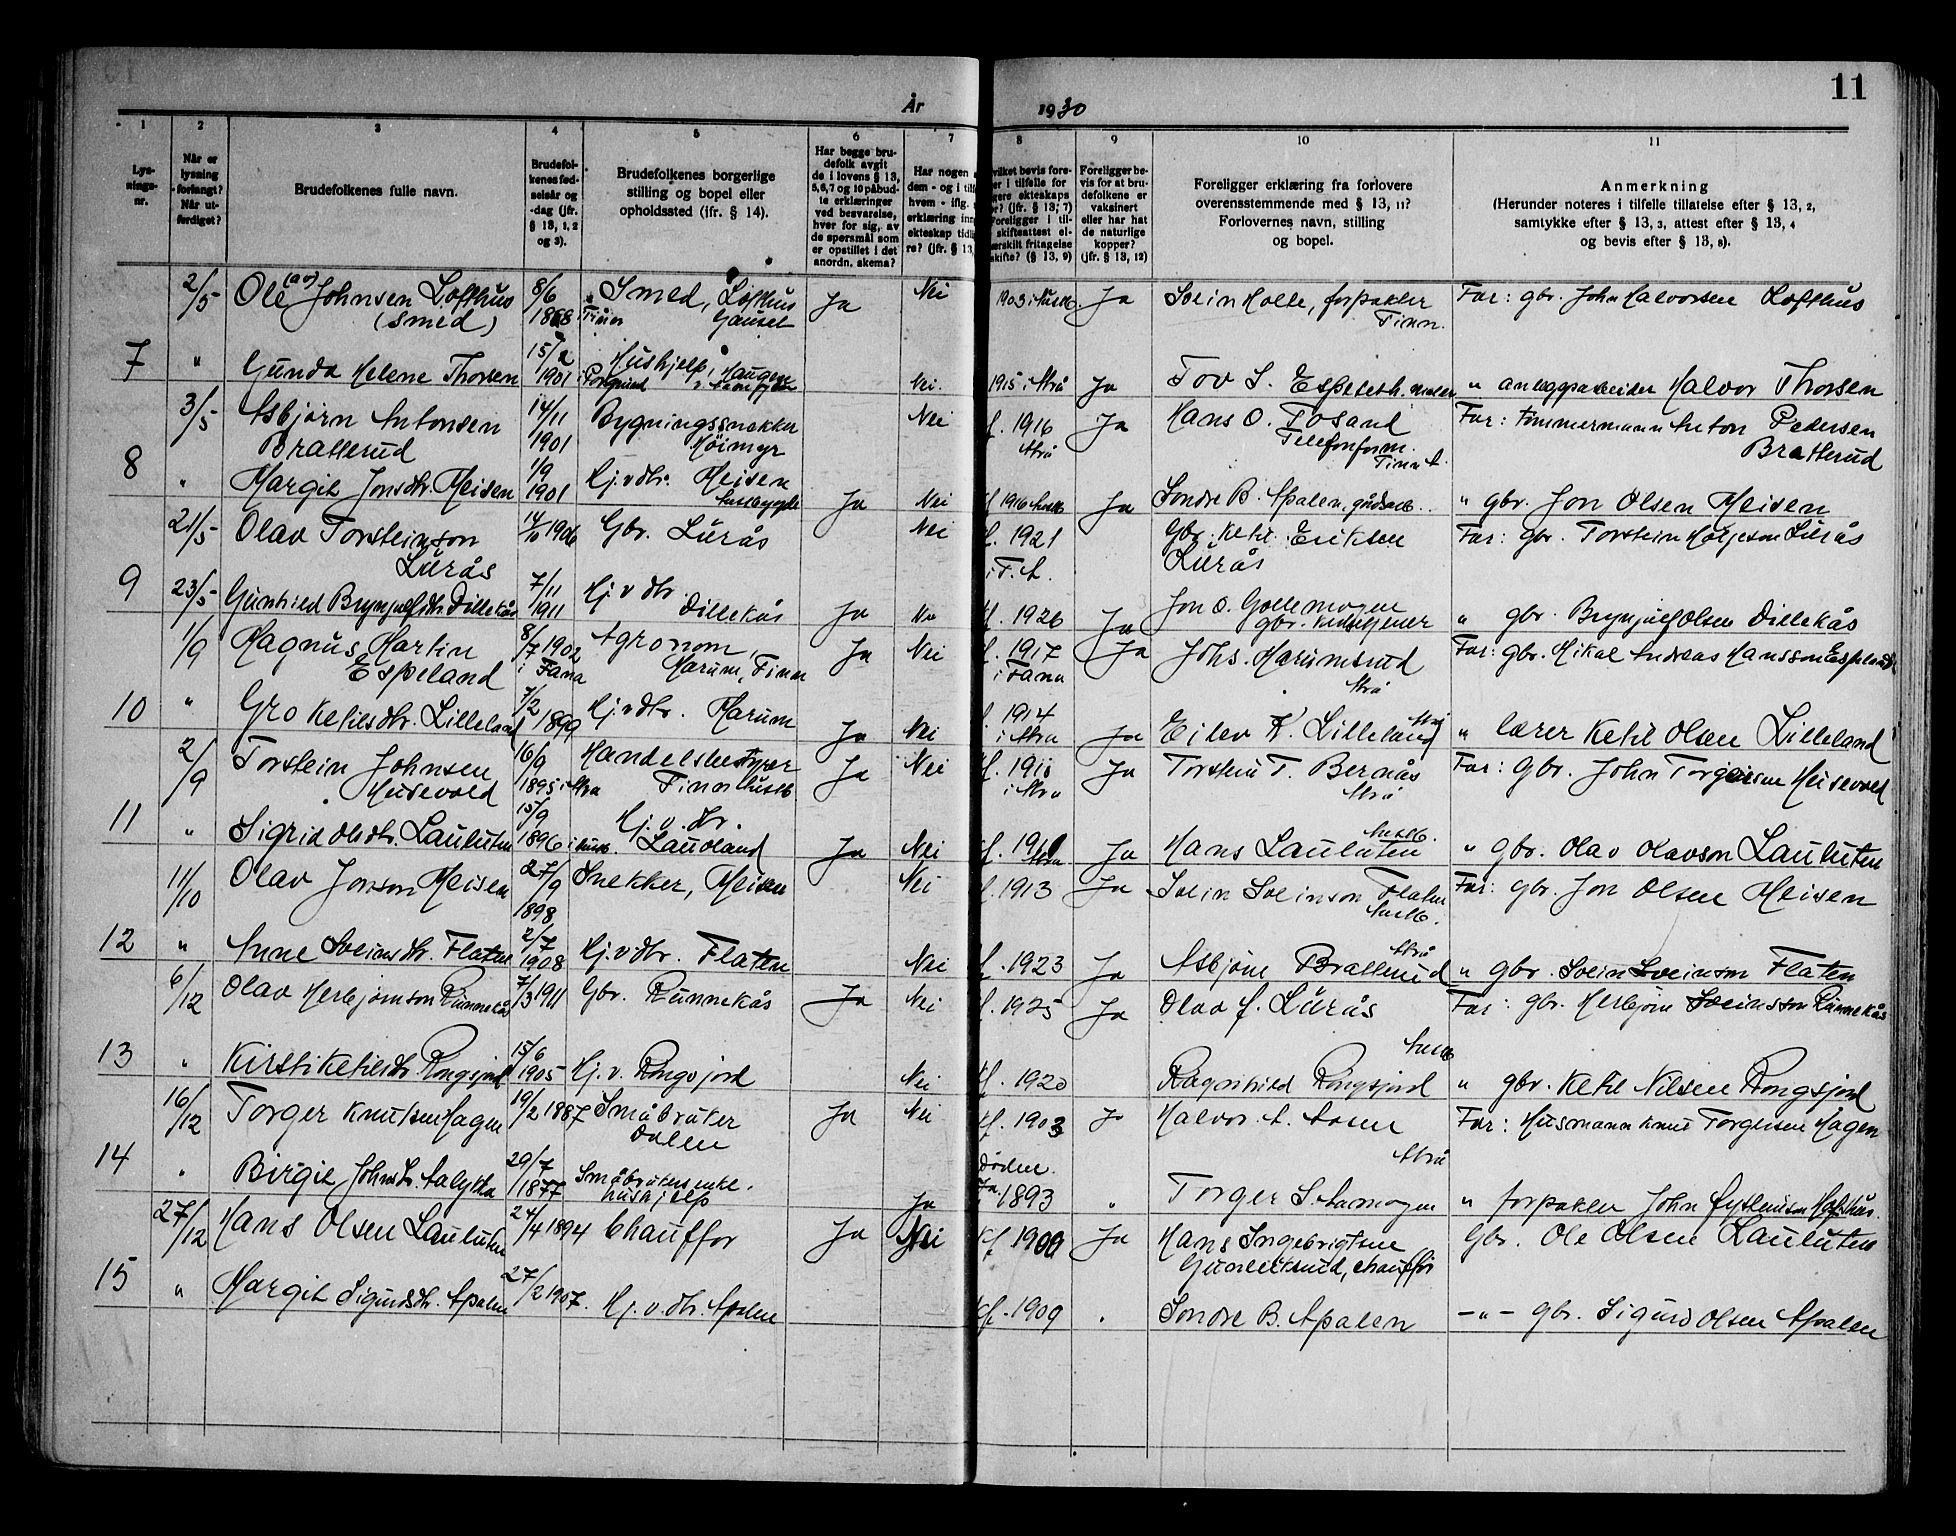 11
År 1930
1 2 3 4 5 6 7 8 9 10 11
Lysnings-nr.
Når er lysning forlangt? Når utferdiget?
Brudefolkenes fulle navn.
Brudefolkenes fødselsår og -dag (jfr. § 13, 1, 2 og 3).
Brudefolkenes borgerlige stilling og bopel eller opholdssted (jfr. § 14).
Har begge brudefolk avgitt de i lovens § 13, 5, 6, 7 og 10 påbudte erklæringer ved besvarelse, hver for sig, av de spørsmål som er opstillet i det anordn. skema?
Har nogen
dem - og i tilf
hvem - iflg.
erklæring inn
ekteskap tidl
re? (jfr. § 13,
vilket bevis fore-
er i tilfelle for
gere ekteskaps
r? (jfr. § 13, 7)
Foreligger i til-
skifteattest el-
ærskilt fritagelse
skifte? (§ 13, 9)
Foreligger bevis for at brudefolkene er vaksinert eller har hat de naturlige kopper? (jfr. § 13, 12)
Foreligger erklæring fra forlovere overensstemmende med § 13, 11? Forlovernes navn, stilling og bopel.
Anmerkning
(Herunder noteres i tilfelle tillatelse efter § 13, 2, samtykke efter § 13, 3, attest efter § 13, 4 og bevis efter § 13, 8).
2/5 Ole Johnsen Lofthus (smed) 8/6 Smed, Lofthus Gauset Ja Nei 1903 Ja Svein Holte, forpakter Tinn. Far: gbr. John Halvorsen Lofthus
7 " Gunda Helene Thorsen 15/2 1901 Hushjelp, Haugen Nei. 1915 i Atrå Ja Tov S. Espeseth " anleggsarbeider Halvor Thorsen
3/5 Asbjørn Antonsen Bratterud 14/11 1901 Bygningssnekker Høimyr Nei 1916 Atrå Ja Hans O. Tosand Telefonform. Tinn A. Far: Tømmermann Anton Pedersen Bratterud
8 " Margit Jonsdtr. Meisen 1/9 1901 Hj.v.dtr. Meisen Ja Nei 1916 Ja Sondre B. Apalen, " gbr. Jon Olsen Meisen
21/5 Olav Torsteinson Lurås 14/10 1906 Gbr. Lurås Nei 1921 i T. A. Gbr. Ketil Eriksen Lurås Far: gbr. Torstein Lurås
9 23/5 Gunhild Brynjulfsdtr. Dillekås 7/11 1911 Hj. v. dtr. Dillekås Ja Nei 1926 Ja Jon O. Gollemogen gbr. " gbr. Brynjulf Olsen Dillekås
1/9 Magnus Martin Espeland 8/7 1902 i Fana Agronom, Marum, Tinn Ja Nei 1917 i Fana Ja Johs. Marumsrud Atrå Far: gbr. Mikal Andreas Hansson Espeland
10 " Gro Ketilsdtr. Lilleland 7/2 1899 Hj.v.dtr. Marum Ja Nei 1914 i Atra Ja Eilev K. Lilleland Atrå " lærer Ketil Olsen Lilleland
2/9 Torstein Johnsen Husevold 16/9 1895 i Atra Handelsbestyrer Tinn Austb Ja Nei i Atra Ja Torstein T. Bernås Atrå Far: Gbr. John Torgersen Husevold
11 " Sigrid Olsdtr. Lauluten 15/9 1896 Hj. v. dtr. Lauvland Ja Nei Ja Hans Lauluten Austb. " gbr. Olav Olavson Lauluten
11/10 Olav Jonson Meisen 27/9 1898 Snekker, Meisen Nei 1913 Ja Svein Sveinson Flaten Austb. Far: gbr. Jon Olsen Meisen
12 " Anne Sveinsdtr. Flaten 2/7 1908 Hj.v.dtr. Flaten Nei 1923 Ja Asbjørn Bratterud Atrå " gbr. Svein Sveinson Flaten
6/12 Olav Herbjørnson Runnekås 7/3 1911 Gbr. Runnekås Ja Nei 1925 Ja Olav J. Lurås Far: gbr. Herbjørn Sveinsson Runnekås
13 " Kirsti Ketilsdtr. Rongsjord 15/6 1905 Hj. v. Rongsjord Nei Kf. 1920 Ragnhild Rongsjord Austb " gbr. Ketil Nilsen Rongsjord
16/12 Torger Knutsen Hagen 19/2 1887 Småbruker Dalen Ja Nei Kf. 1903 Ja Halvor A. Aasen Far: Husmann Knut Torgersen Hagen
14 " Birgit Johnsdtr. 29/7 1877 Småbrukerenke. hushjelp Ja Døden. 1893 " Torger S. Aamogen Atrå " forpakter John
27/12 Hans Olsen Lauluten 24/4 1894 Chauffør Ja Nei Kf 1909 Ja Hans Ingebrigtsen Gunleiksrud, chauffør Gbr. Ole Olsen Lauluten
15 " Margit Sigurdsdtr. Apalen 27/2 1907. Hj. v. dtr. Apalen Kf. 1909 " Sondre B. Apalen -"- gbr. Sigurd Olsen Apalen